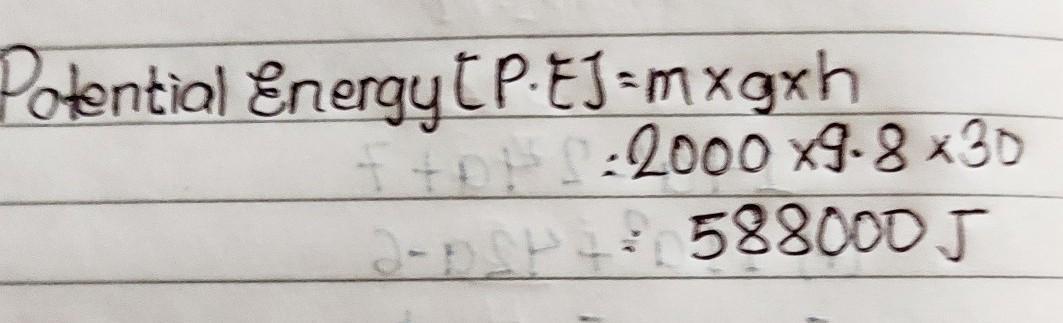 Potential Energy [P.E] = m x g x h
= 2000 x 9.8 x 30
= 588000 J